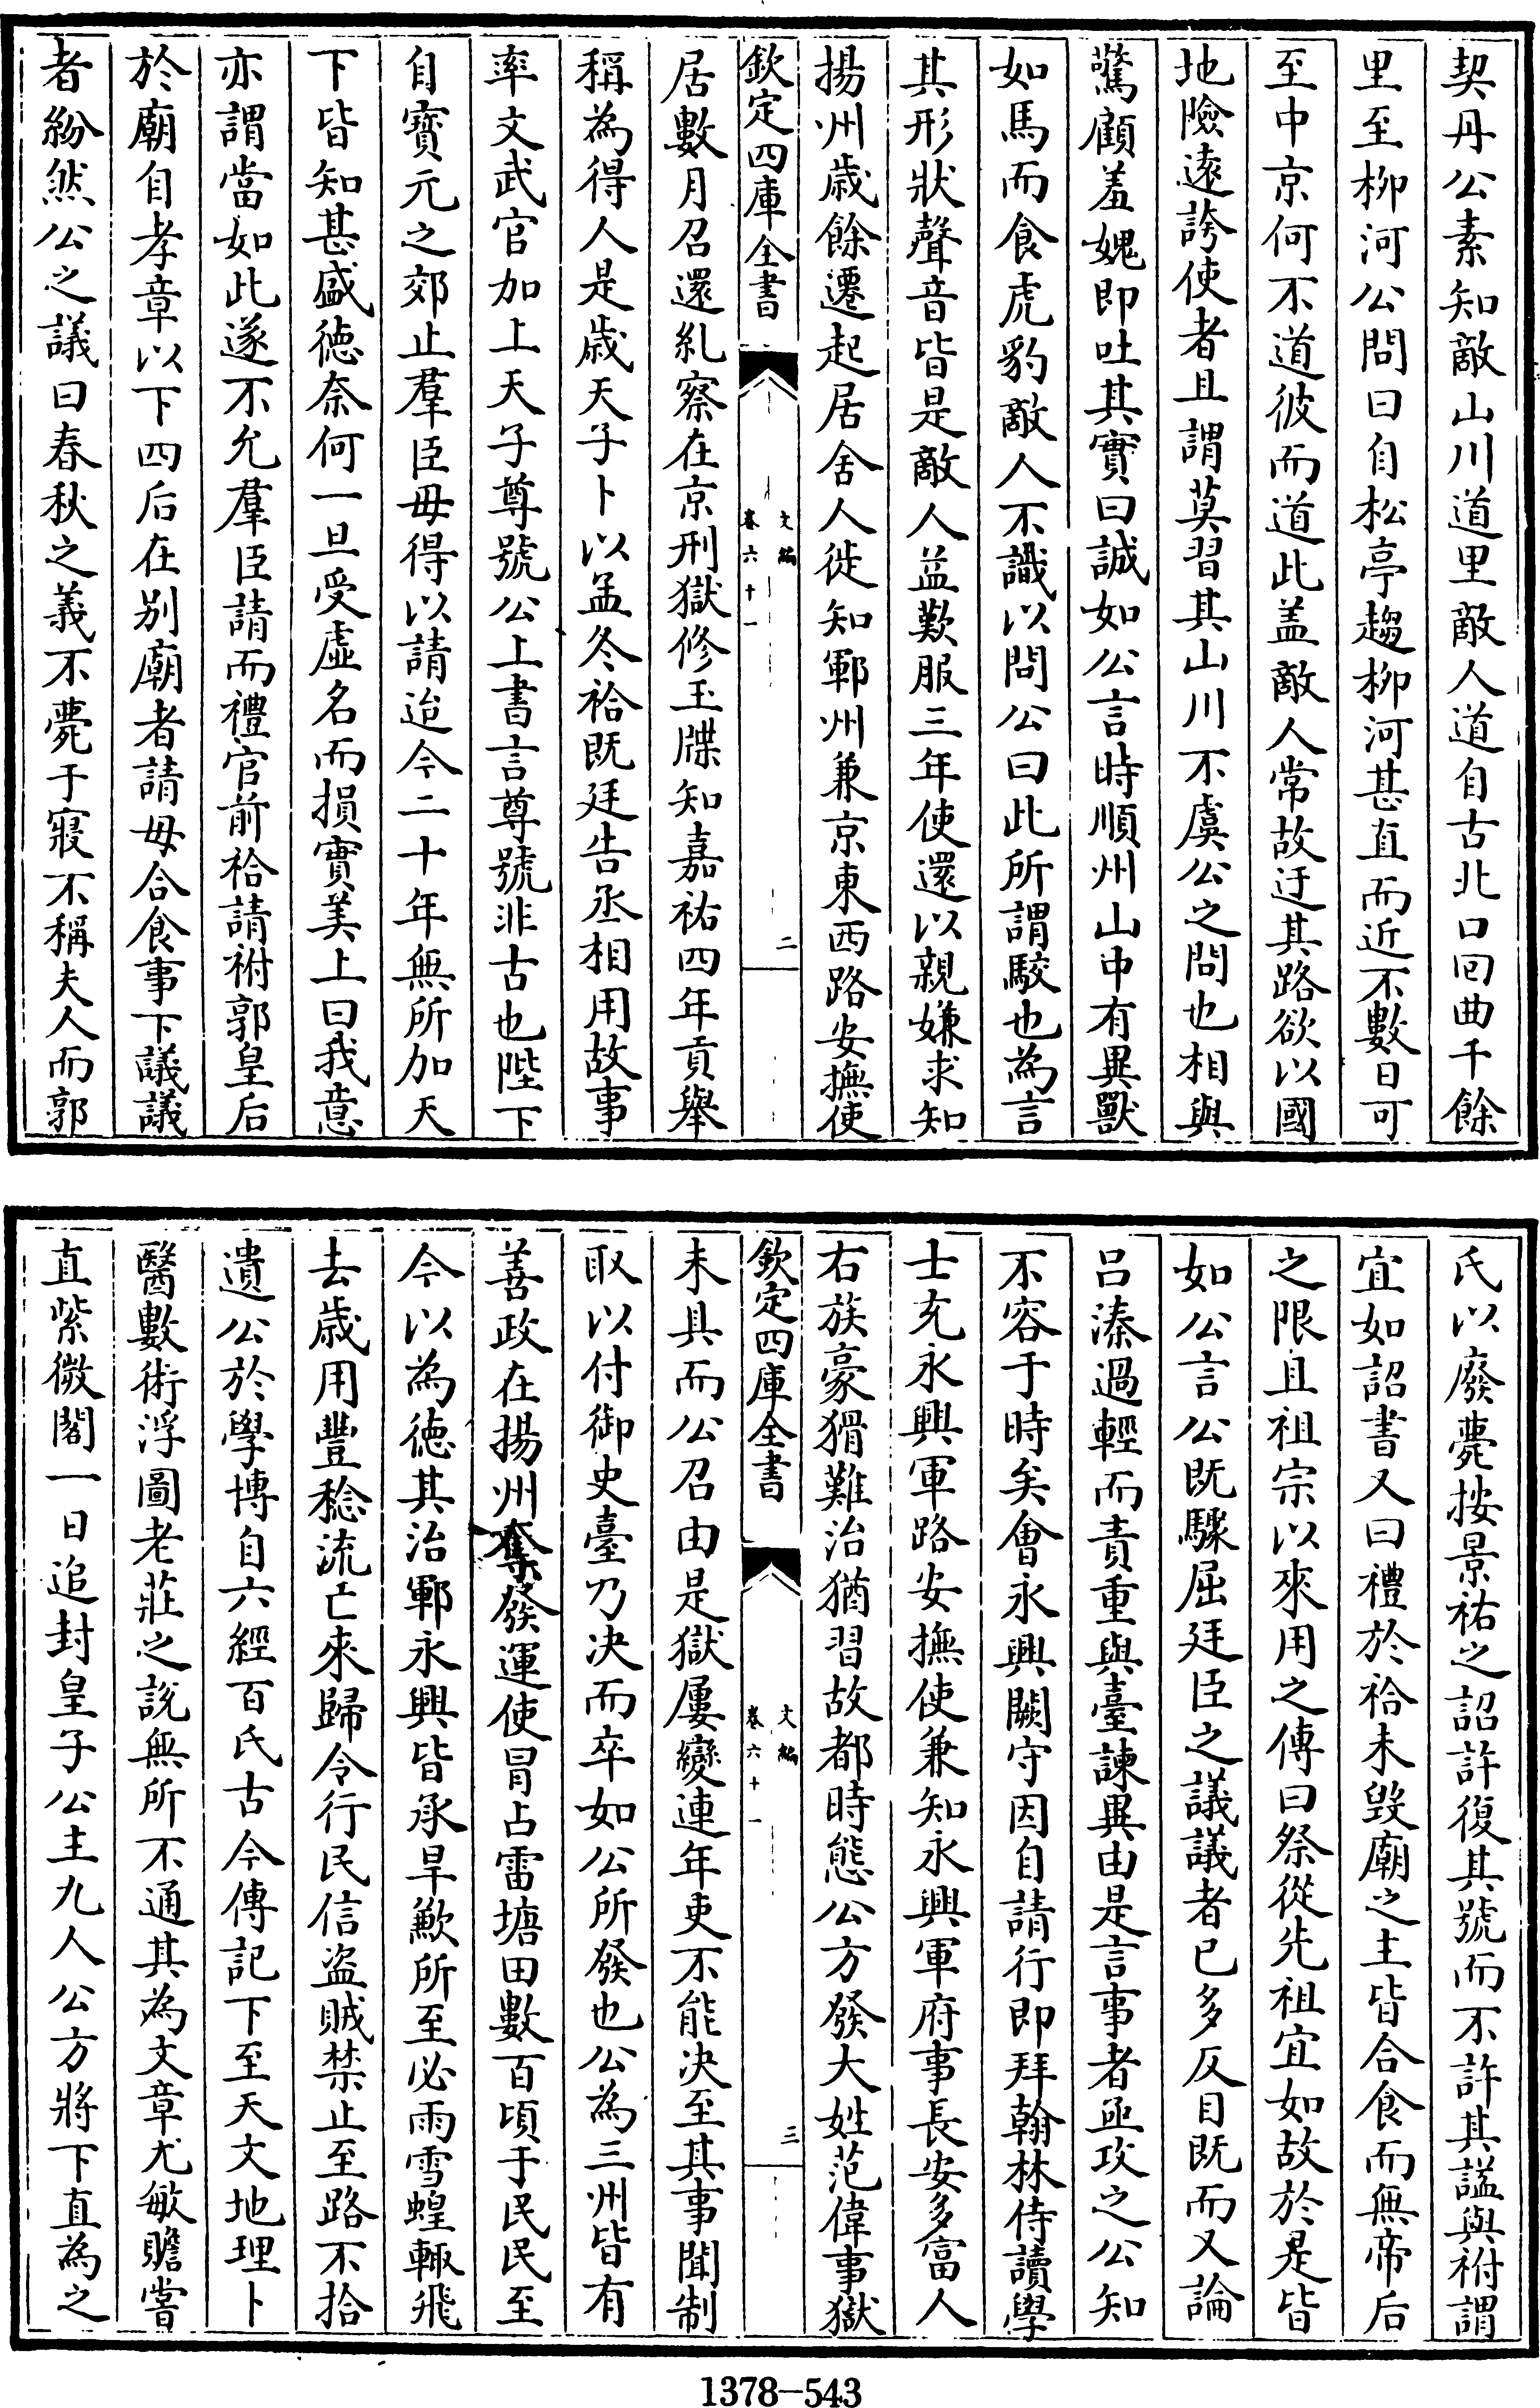 契丹公素知敵山川道里敵人道自古北口囘曲千餘
里至柳河公問曰自松亭趨柳河甚直而近不數日可
至中京何不道彼而道此盖敵人常故迂其路欲以國
地險遠誇使者且謂莫習其山川不虞公之問也相與
驚顧羞媿即吐其實曰誠如公言時順州山中有異獸
如馬而食虎豹敵人不識以問公曰此所謂駮也為言
其形狀聲音皆是敵人益歎服三年使還以親嫌求知
揚州歲餘遷起居舍人徙知鄆州兼京東西路安撫使
欽定四庫全書
文編
卷六十一
二
居數月召還糺察在京刑獄修玉牒知嘉祐四年貢舉
稱為得人是歲天子卜以孟冬祫既廷告丞相用故事
率文武官加上天子尊號公上書言尊號非古也陛下
自寳元之郊止羣臣毋得以請迨今二十年無所加天
下皆知甚盛德奈何一旦受虛名而損實美上曰我意
亦謂當如此遂不允羣臣請而禮官前祫請祔郭皇后
於廟自孝章以下四后在别廟者請毋合食事下議議
者紛然公之議曰春秋之義不薨于寢不稱夫人而郭
氏以廢薨按景祐之詔許復其號而不許其諡與祔謂
宜如詔書又曰禮於祫未毀廟之主皆合食而無帝后
之限且祖宗以來用之傳曰祭從先祖宜如故於是皆
如公言公既驟屈廷臣之議議者已多仄目既而又論
呂溱過輕而責重與臺諫異由是言事者亟攻之公知
不容于時矣會永興闕守因自請行即拜翰林侍讀學
士充永興軍路安撫使兼知永興軍府事長安多富人
右族豪猾難治猶習故都時態公方發大姓范偉事獄
欽定四庫全書
文編
卷六十一
三
未具而公召由是獄屢變連年吏不能決至其事聞制
取以付御史臺乃决而卒如公所發也公為三州皆有
善政在揚州奪發運使冒占雷塘田數百頃于民民至
今以為德其治鄆永興皆承旱歉所至必雨雪蝗輒飛
去歲用豐稔流亡來歸令行民信盜賊禁止至路不拾
遺公於學博自六經百氏古今傳記下至天文地理卜
醫數術浮圖老莊之說無所不通其為文章尤敏贍嘗
直紫微閣一日追封皇子公主九人公方將下直為之
1378-543